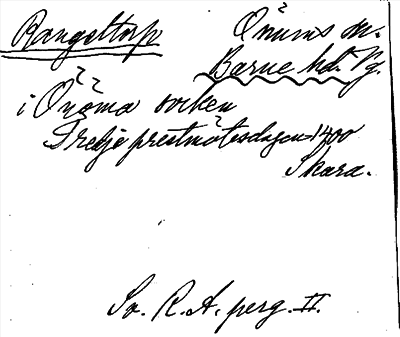 Rangeltorp
Önums sn.
Barne hd. Vg.
i Önoma soken
Tredje prestmötesdagen 1400
Skara.
Sv. R. A. perg. II.